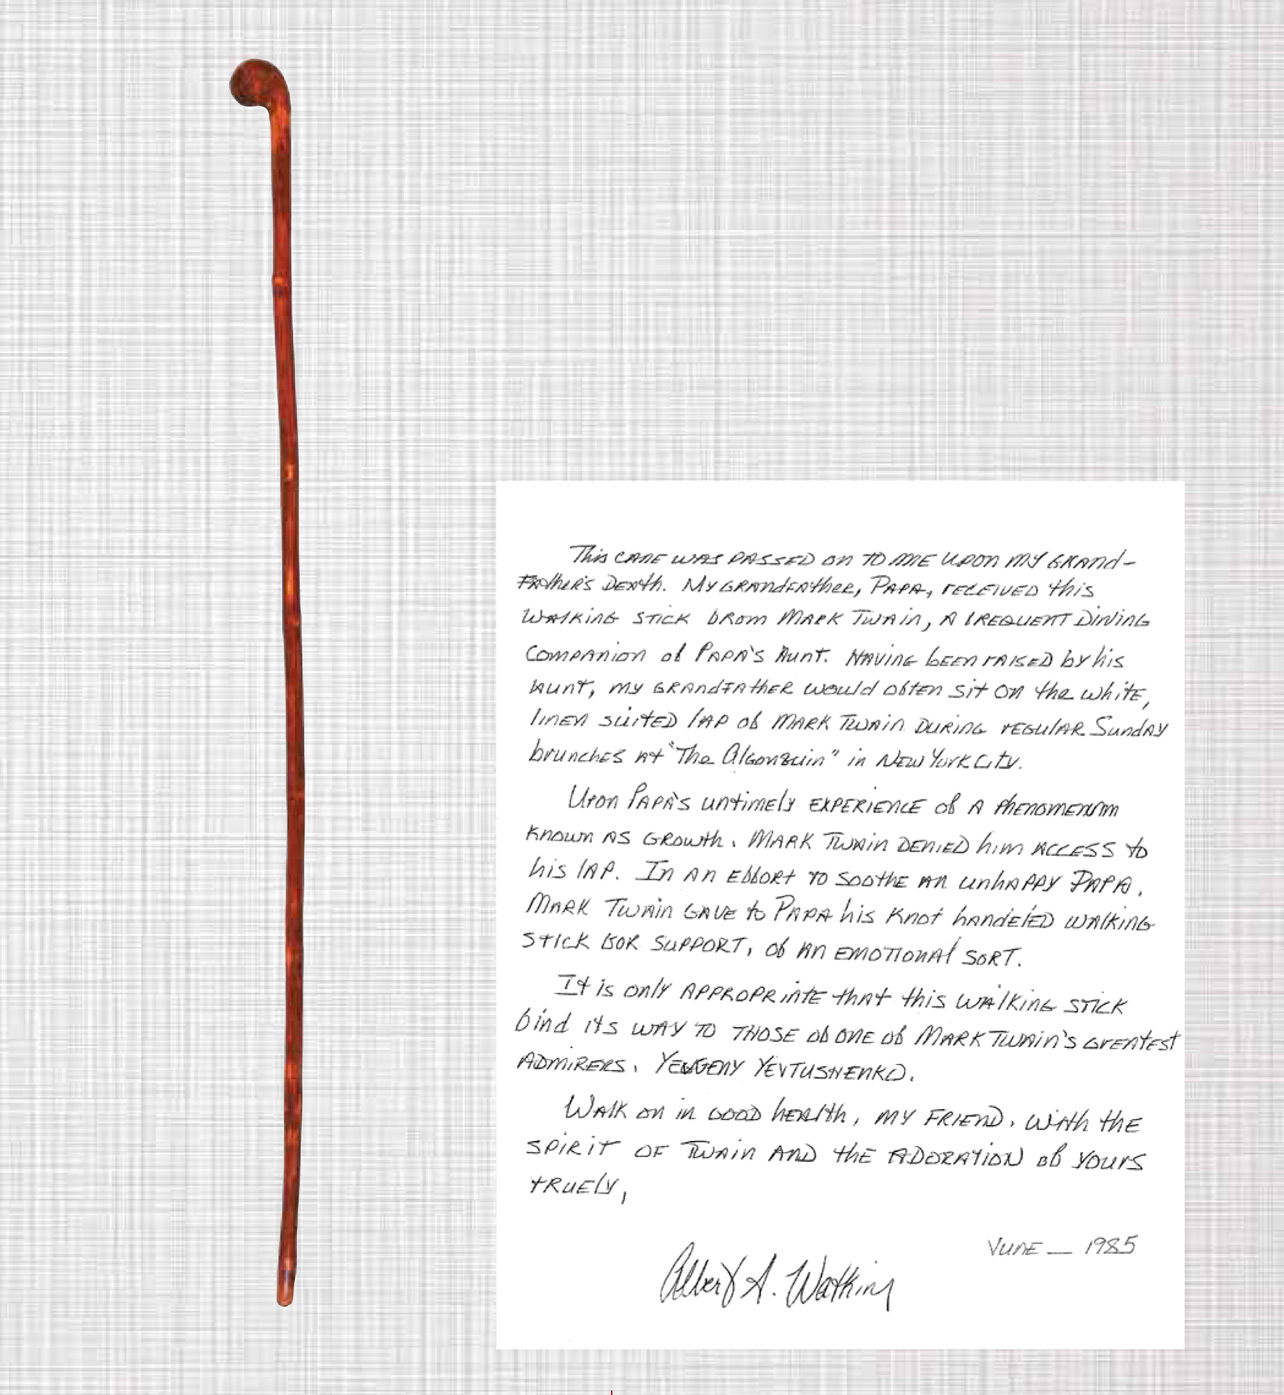 This cane was passed on to me upon my grand-
father's death. My grandfather, Papa, received this
walking stick from Mark Twain, a frequent dining
companion of Papa's Aunt. Having been raised by his
Aunt, my grandfather would often sit on the white,
linen suited lap of Mark Twain during regular Sunday
brunches at "The Algonquin" in New York City.
Upon Papa's untimely experience of a phenomenum
known as growth, Mark Twain denied him access to
his lap. In an effort to soothe an unhappy Papa,
Mark Twain gave to Papa his knot handeled walking
stick for support, of an emotional sort.
It is only appropriate that this walking stick
find its way to those of one of Mark Twain's greatest
admirers, Yevgeny Yevtushenko.
Walk on in good health, my friend, with the
spirit of Twain and the adoration of yours
truely,
June — 1985
Albert A. Watkins